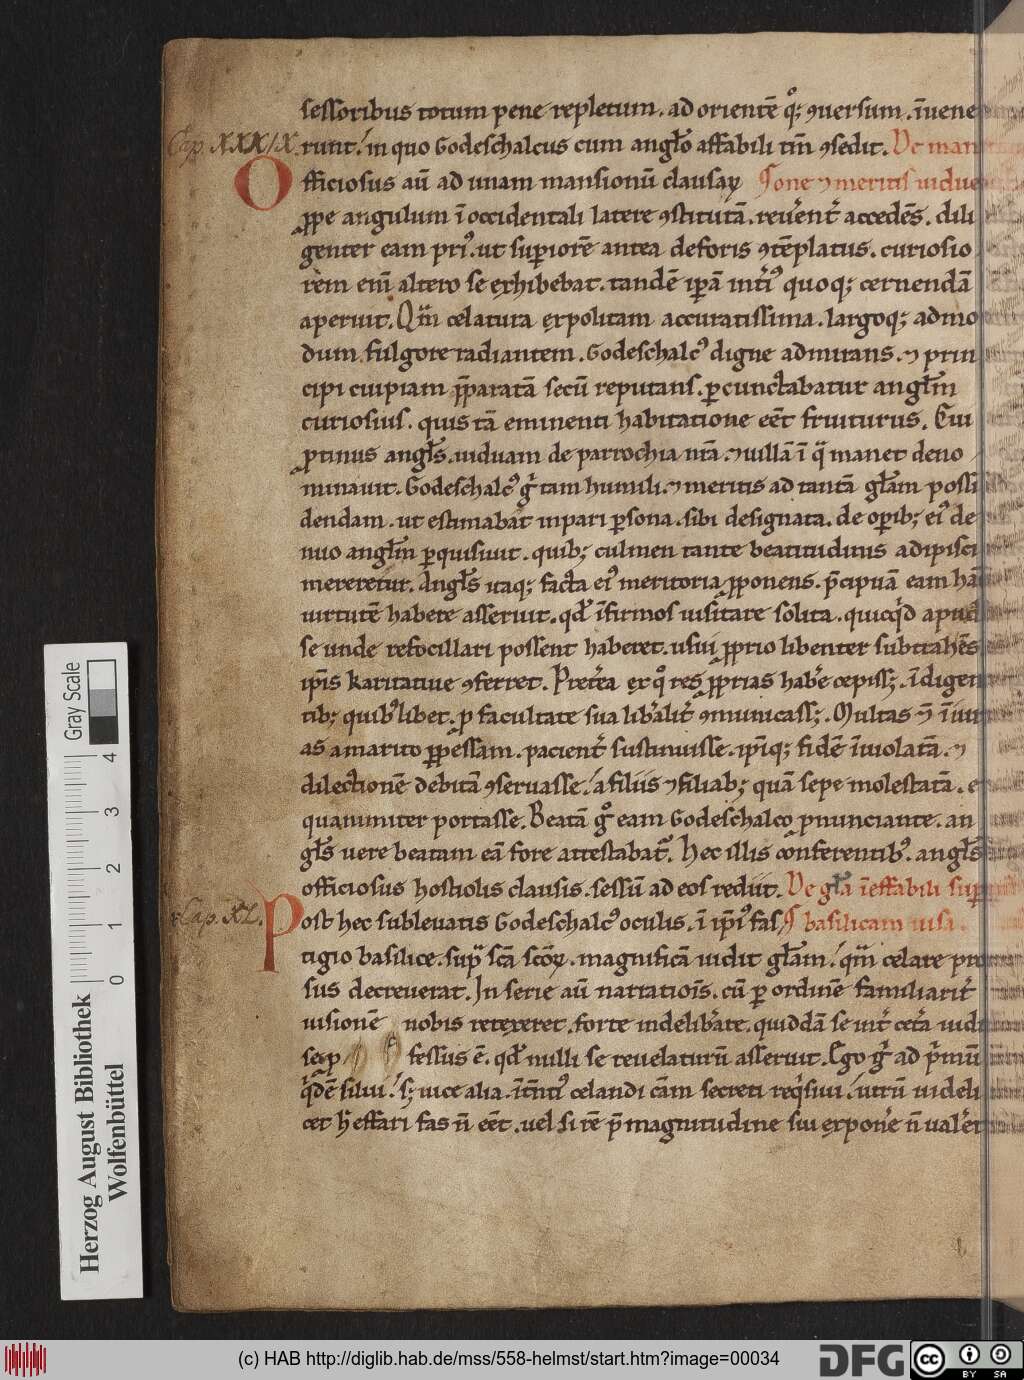 sessoribus totum pene repletum. ad orientē q̊; ꝯuersum. īuene
Cap. XXXIX. runt. in quo Godeschalcus cum angło affabili tm̄ ꝯsedit. De man
Officiosus aū ad unam mansionū clausaꝝ sione ⁊ meritis uidue
ꝓpe angulum ī occidentali latere ꝯstitutā. reuēnt̄ accedēs. dili
genter eam pri᷒. ut supiorē antea deforis ꝯtēplatus. curiosio
rem eni altero se exhibebat. tandē ip̄ā int̄i᷒ quoq; cernendā
aperuit. Qm̄ celatura expolitam accuratissima. largoq; admo
dum fulgore radiantem. Godeschalc᷒ digne admirans. ⁊ prin
cipi cuipiam p̄paratā secū reputans. ꝑcunctabatur angłm
curiosius. quis tā eminenti habitatione eēt fruiturus. Cui
ꝓtinus angłs. uiduam de parrochia nr̄a ⁊ uillā ī q̄ manet deno
minauit. Godeschalc᷒ g̊ tam humili. ⁊ meritis ad tantā głam possi
dendam. ut estimabat inpari ꝑsona. sibi designata. de oꝑib; ei᷒ de
nuo angłm ꝑquisiuit. quib; culmen tante beatitudinis adipisci
mereretur. Angłs itaq; facta ei᷒ meritoria ꝓponens. p̄cipuā eam hāc
uirtutē habere asseruit. qđ īfirmos uisitare solita. quicq̄d apud
se unde refocillari possent haberet. usui ꝓprio libenter subtrahēs
ip̄is karitatiue ꝯferret. Pret̄ea ex q̊ res ꝓprias hab̄e cepiss;. īdigen
tib; quib᷒libet. ꝓ facultate sua lib̄alit̄ ꝯmunicass;. Multas ⁊ īiuri
as a marito ꝑpessam. pacient̄ sustinuisse. ip̄iq; fidē īuiolatā. ⁊
dilectionē debitā ꝯseruasse. a filiis ⁊ filiab; quā sepe molestatā. e
quanimiter portasse. Beatā g̊ eam Godeschalco ꝓnunciante. an
głs uere beatam eā fore attestabat᷑. Hec illis conferentib᷒. angłs
officiosus hostiolis clausis. sessū ad eos rediit. De gła īeffabili sup
Cap. XL. Post hec subleuatis Godeschalc᷒ oculis. ī ip̄i᷒ fas basilicam uisa.
tigio basilice. sup̄ sc̄ā sc̄oꝝ. magnificā uidit głam. qm̄ celare pr
sus decreuerat. In serie aū narratiois. cū ꝑ ordinē familiarit̄
uisionē nobis retexeret. forte indelib̄ate. quiddā se int̄ cet̄a uidi
fessus ē. qđ nulli se reuelaturū asseruit. Ego g̊ ad p̄mū
q̄dē silui. s; uice alia. celandi cām secreti req̄siui. utrū uideli
cet h̄ effari fas n̄ eēt. uel si rē p̄ magnitudine sui expon̄e n̄ ual̄et
Gray Scale
0 1 2 3 4
Herzog August Bibliothek
Wolfenbüttel
(c) HAB http://diglib.hab.de/mss/558-helmst/start.htm?image=00034
DFG
cc
BY SA